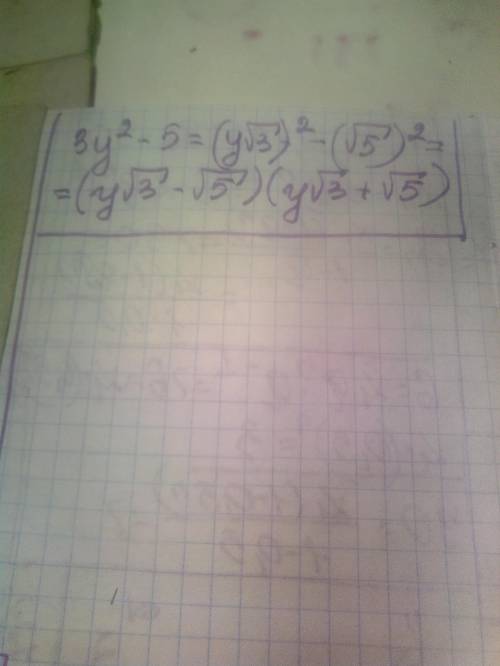 3y² - 5 = (y√3)² - (√5)² =
= (y√3 - √5)(y√3 + √5)